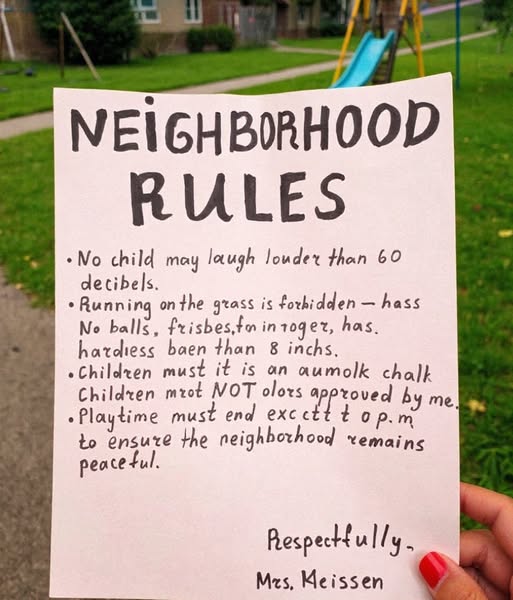 NEIGHBORHOOD
RULES
• No child may laugh louder than 60
decibels.
• Running on the grass is forbidden – hass
No balls, frisbes, fo in roger, has.
hardless baen than 8 inchs.
• Children must it is an aumolk chalk
Children mrot NOT olors approved by me.
• Playtime must end exc ctt t o p.m
to ensure the neighborhood remains
peaceful.
Respectfully.
Mrs. Meissen